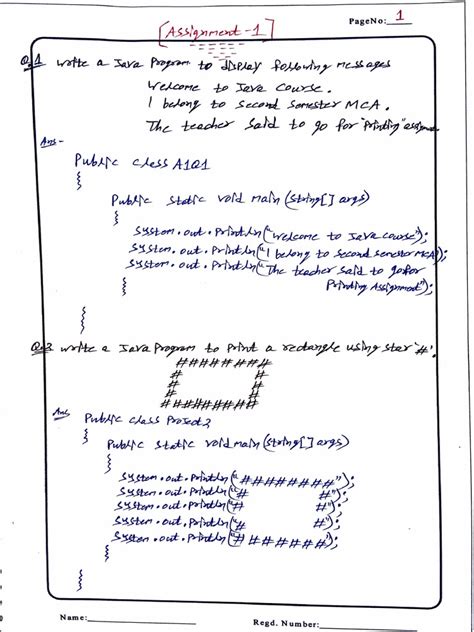 PageNo: 1
[Assignment-1]
Q.1 write a Java Program to display following messages
Welcome to Java Course.
I belong to second semester MCA.
The teacher said to go for "Printing" assignment.
Ans -
Public class A1Q1
{
Public static void main (String[] args)
{
System.out.Println("Welcome to Java course");
System.out.Println("I belong to second semester MCA");
System.out.Println("The teacher said to go for
Printing Assignment");
}
}
Q.2 write a Java Program to Print a rectangle using star '#'.
########
# #
# #
# #
########
Ans
Public class Project2
{
Public static void main (String[] args)
{
System.out.Println("########");
System.out.Println("# #");
System.out.Println("# #");
System.out.Println("# #");
System.out.Println("# ######");
}
}
Name:
Regd. Number: